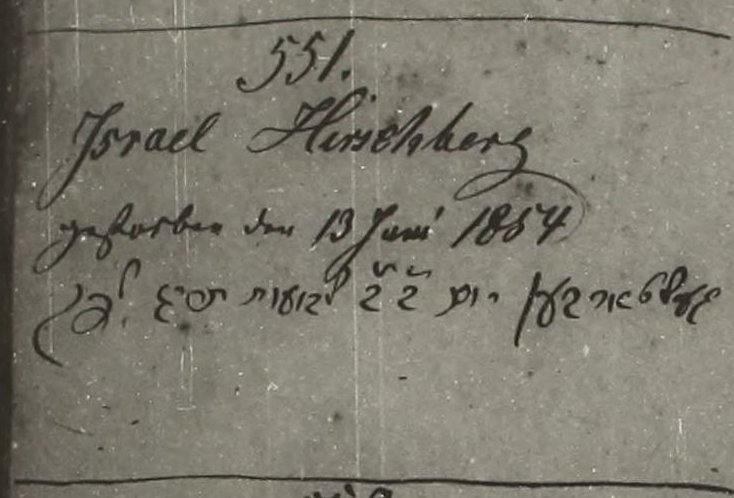 551.
Israel Hirschberg
gestorben den 13 Juni 1854
געשטארבען יום ב̈ ב̈ שבועות תריג לפק